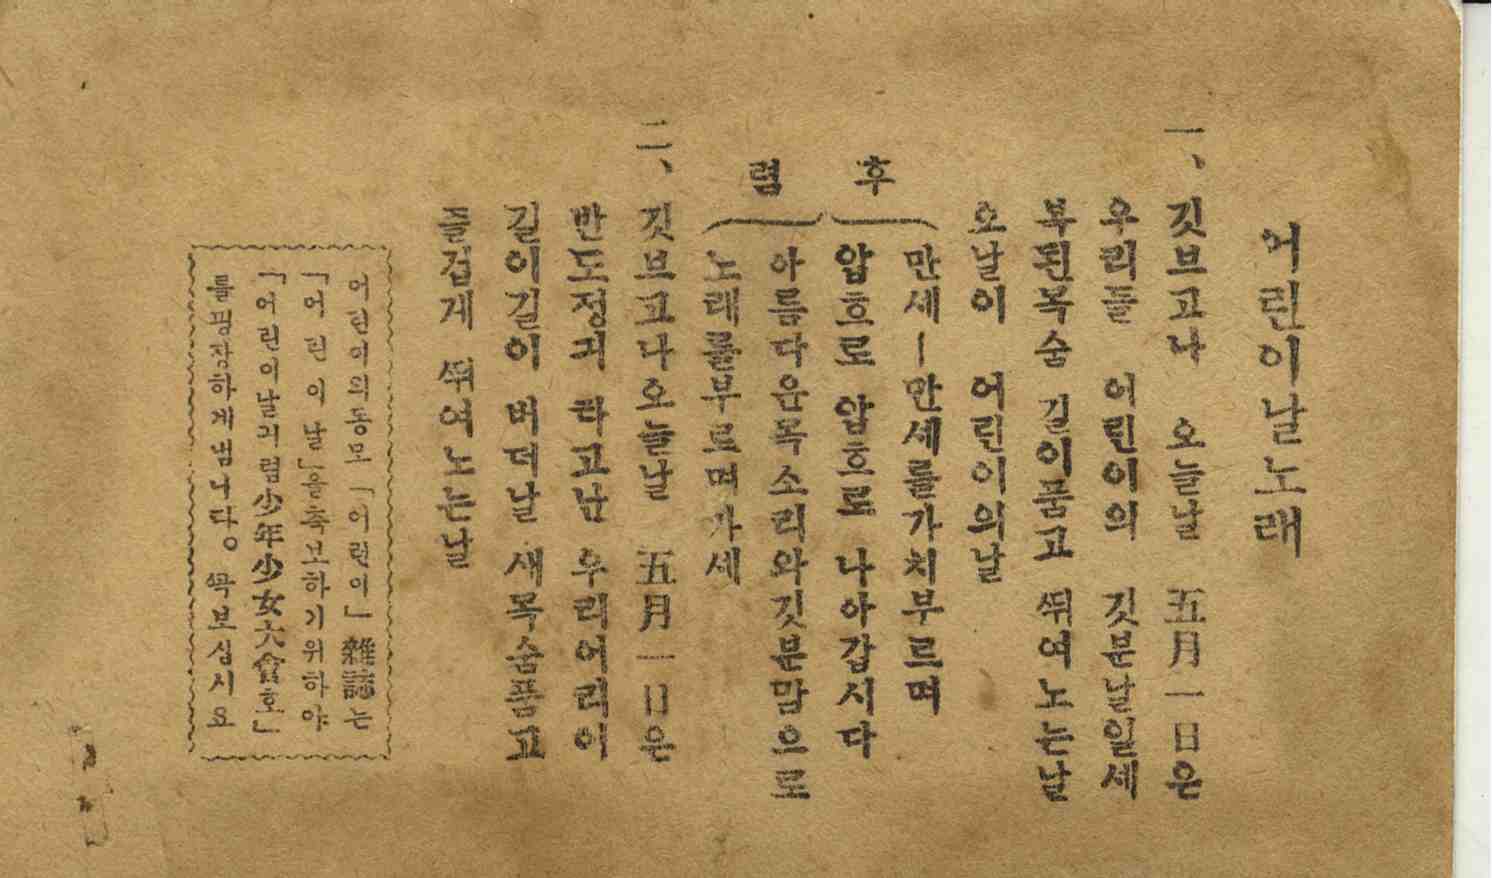 어린이날노래
一、깃브고나 오늘날 五月一日은
우리들 어린이의 깃분날일세
복된목숨 길이품고 뛰여노는날
오날이 어린이의날
후렴
만세ㅣ만세를가치부르며
압흐로 압흐로 나아갑시다
아름다운목소리와깃분맘으로
노래를부르며가세
二、깃브고나오늘날 五月一日은
반도정긔 타고난 우리어린이
길이길이 버더날 새목숨품고
즐겁게 뛰여노는날
어린이의동모「어린이」雜誌는
「어린이날」을축보하기위하야
「어린이날긔렴少年少女大會호」
를굉장하게냄니다。꼭보십시요